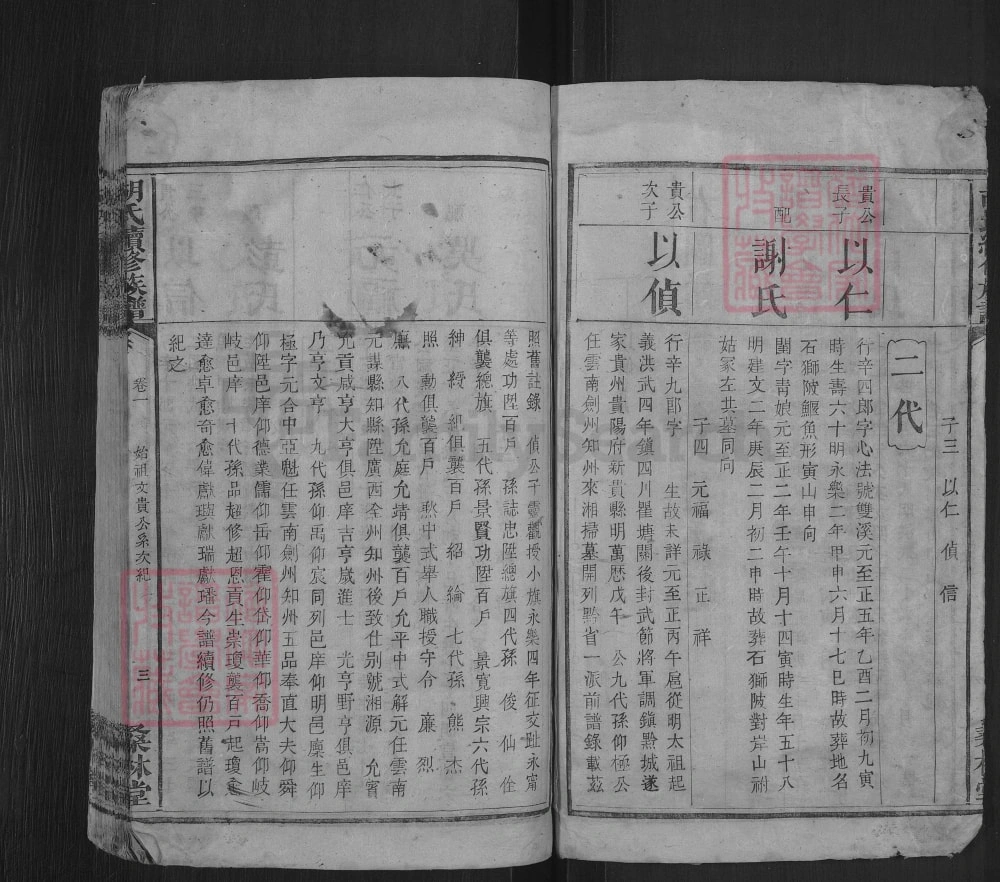 子三 以仁 偵 信
二代
貴公長子 以仁
行辛四郎字心法號雙溪元至正五年乙酉二月初九寅
時生壽六十明永樂二年甲申六月十七巳時故葬地名
石獅陂鰋魚形寅山申向
配 謝氏
閨字青娘元至正二年壬午十月十四寅時生年五十八
明建文二年庚辰二月初二申時故葬石獅陂對岸山祔
姑冢左共墓同向
子四 元福 祿 正 祥
貴公次子 以偵
行辛九郎字 生故未詳元至正丙午扈從明太祖起
義洪武四年鎮四川瞿塘關後封武節將軍調鎭黔城遂
家貴州貴陽府新貴縣明萬歷戊午 公九代孫仰極公
任雲南劍州知州來湘掃墓開列黔省一派前譜錄載茲
照舊註錄 偵公子靈觀授小旗永樂四年征交趾永甯
等處功陞百戶 孫誌忠陞總旗四代孫 俊 仙 佺
俱襲總旗 五代孫景賢功陞百戶 景寬興宗六代孫
紳 綬 組俱襲百戶 紹 綸 七代孫 熊 杰
照 勳俱襲百戶 㷼中式舉人職授守令 廉 烈
廡 八代孫允庭允靖俱襲百戶允平中式解元任雲南
元謀縣知縣陞廣西全州知州後致仕別號湘源 允實
允貢咸亨大亨俱邑庠吉亨崴進士 光亨野亨俱邑庠
乃亨文亨 九代孫仰禹仰宸同列邑庠仰明邑廩生仰
極字元合中亞魁任雲南劍州知州五品奉直大夫仰舜
仰陞邑庠仰德業儒仰岳仰霍仰岱仰華仰喬仰嵩仰岐
岐邑庠 十代孫品超修超恩貢生崇瓊襲百戶起瓊愈
達愈卓愈奇愈偉獻璵獻瑞獻璠今譜續修仍照舊譜以
紀之
胡氏續修族譜 卷一 始祖文貴公系次紀 三 桑林堂